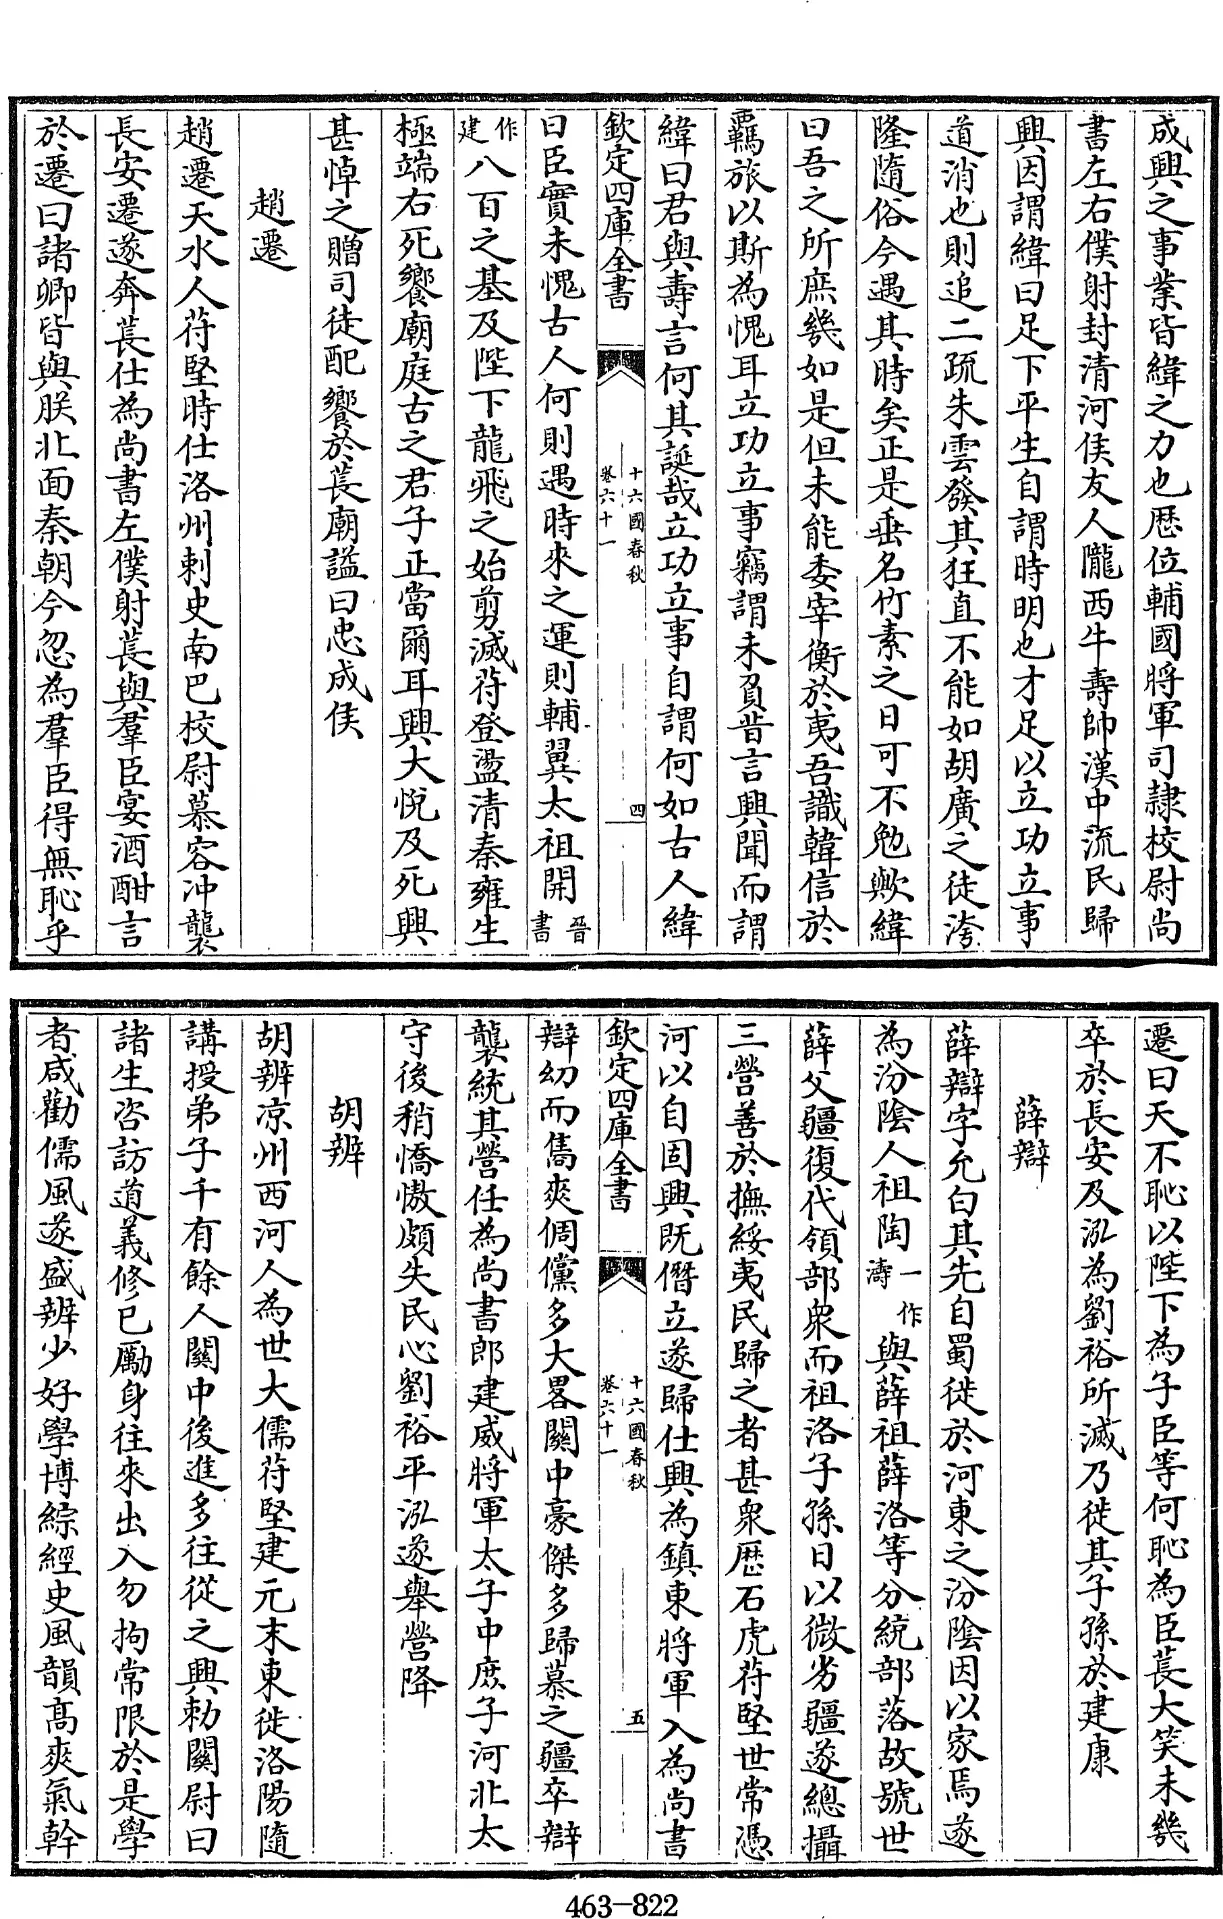 成興之事業皆緯之力也歴位輔國將軍司隷校尉尚
書左右僕射封清河侯友人隴西牛壽帥漢中流民歸
興因謂緯曰足下平生自謂時明也才足以立功立事
道消也則追二疏朱雲發其狂直不能如胡廣之徒洿
隆隨俗今遇其時矣正是垂名竹素之日可不勉歟緯
曰吾之所庶幾如是但未能委宰衡於夷吾識韓信於
羈旅以斯為愧耳立功立事竊謂未負昔言興聞而謂
緯曰君與壽言何其誕哉立功立事自謂何如古人緯
欽定四庫全書 十六國春秋 卷六十一 四
曰臣實未愧古人何則遇時來之運則輔翼太祖開晉書
作建八百之基及陛下龍飛之始剪滅苻登盪清秦雍生
極端右死饗廟庭古之君子正當爾耳興大悅及死興
甚悼之贈司徒配饗於萇廟諡曰忠成侯
趙遷
趙遷天水人苻堅時仕洛州刺史南巴校尉慕容冲襲
長安遷遂奔萇仕為尚書左僕射萇與羣臣宴酒酣言
於遷曰諸卿皆與朕北面秦朝今忽為羣臣得無恥乎
遷曰天不恥以陛下為子臣等何恥為臣萇大笑未幾
卒於長安及泓為劉裕所滅乃徙其子孫於建康
薛辯
薛辯字允白其先自蜀徙於河東之汾隂因以家焉遂
為汾隂人祖陶一作濤與薛祖薛洛等分統部落故號世
薛父疆復代領部衆而祖洛子孫日以微劣疆遂總攝
三營善於撫綏夷民歸之者甚衆歴石虎苻堅世常憑
河以自固興既僭立遂歸仕興為鎮東將軍入為尚書
欽定四庫全書 十六國春秋 卷六十一 五
辯幼而雋爽倜儻多大畧關中豪傑多歸慕之疆卒辯
襲統其營任為尚書郎建威將軍太子中庶子河北太
守後稍憍慠頗失民心劉裕平泓遂舉營降
胡辨
胡辨凉州西河人為世大儒苻堅建元末東徙洛陽隨
講授弟子千有餘人關中後進多往從之興勑關尉曰
諸生咨訪道義修已勵身往來出入勿拘常限於是學
者咸勸儒風遂盛辨少好學博綜經史風韻高爽氣幹
463-822